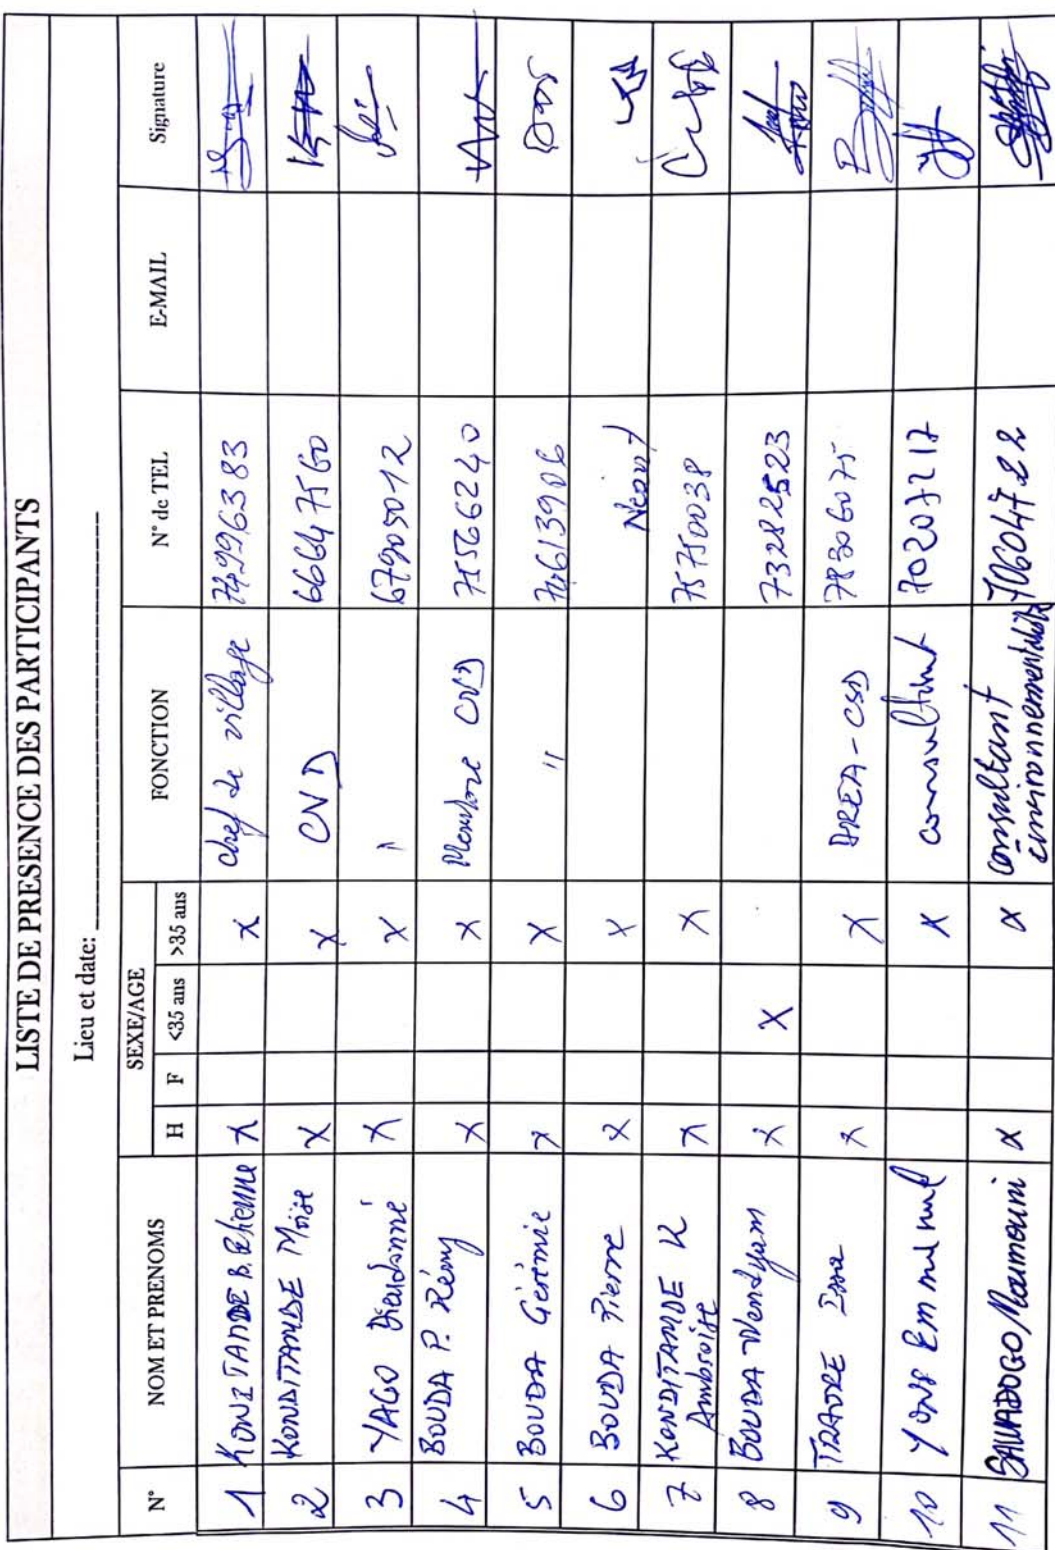 LISTE DE PRESENCE DES PARTICIPANTS
Lieu et date:
N° NOM ET PRENOMS SEXE/AGE FONCTION N° de TEL E-MAIL Signature
H F <35 ans >35 ans
1 KONDITANDE B. Etienne x x chef de village 74996383
2 KONDITAMDE Moïse x x CVD 66647560
3 YAGO Dieudonné x x " 67905012
4 BOUDA P. Rémy x x Membre CVD 75566240
5 BOUDA Gérémie x x " 74613906
6 BOUDA Pierre x x Néant
7 KONDITAMDE K x x 75750038
Ambroise
8 BOUDA Wendyam x x 73282523
9 TRAORE Issa x x AREA-CSD 78306075
10 YONE Emmanuel x consultant 70207217
11 SAWADOGO Maimouni x x consultant 70604722
environnementaliste